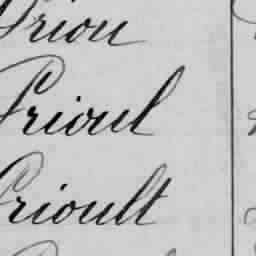 Priou
Prioul
Prioult